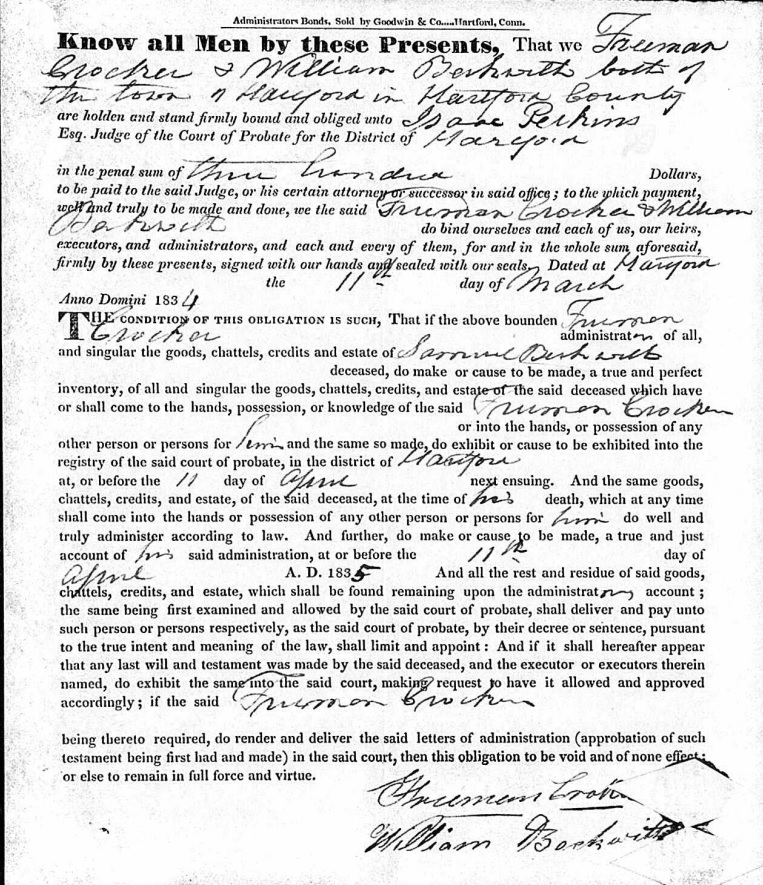 Administrators Bonds, Sold by Goodwin & Co.....Hartford, Conn.
Know all Men by these Presents, That we Freeman
Crocker & William Beckwith both of
the town of Hartford in Hartford County
are holden and stand firmly bound and obliged unto Isaac Perkins
Esq. Judge of the Court of Probate for the District of Hartford
in the penal sum of three hundred Dollars,
to be paid to the said Judge, or his certain attorney or successor in said office; to the which payment,
well and truly to be made and done, we the said Freeman Crocker & William
Beckwith do bind ourselves and each of us, our heirs,
executors, and administrators, and each and every of them, for and in the whole sum aforesaid,
firmly by these presents, signed with our hands and sealed with our seals. Dated at Hartford
the 11th day of March
Anno Domini 1834
THE CONDITION OF THIS OBLIGATION IS SUCH, That if the above bounden Freeman
Crocker administrator of all,
and singular the goods, chattels, credits and estate of Samuel Beckwith
deceased, do make or cause to be made, a true and perfect
inventory, of all and singular the goods, chattels, credits, and estate of the said deceased which have
or shall come to the hands, possession, or knowledge of the said Freeman Crocker
or into the hands, or possession of any
other person or persons for him and the same so made, do exhibit or cause to be exhibited into the
registry of the said court of probate, in the district of Hartford
at, or before the 11 day of April next ensuing. And the same goods,
chattels, credits, and estate, of the said deceased, at the time of his death, which at any time
shall come into the hands or possession of any other person or persons for him do well and
truly administer according to law. And further, do make or cause to be made, a true and just
account of his said administration, at or before the 11th day of
April A. D. 1835 And all the rest and residue of said goods,
chattels, credits, and estate, which shall be found remaining upon the administrators account;
the same being first examined and allowed by the said court of probate, shall deliver and pay unto
such person or persons respectively, as the said court of probate, by their decree or sentence, pursuant
to the true intent and meaning of the law, shall limit and appoint: And if it shall hereafter appear
that any last will and testament was made by the said deceased, and the executor or executors therein
named, do exhibit the same into the said court, making request to have it allowed and approved
accordingly; if the said Freeman Crocker
being thereto required, do render and deliver the said letters of administration (approbation of such
testament being first had and made) in the said court, then this obligation to be void and of none effect;
or else to remain in full force and virtue.
Freeman Crocker
William Beckwith